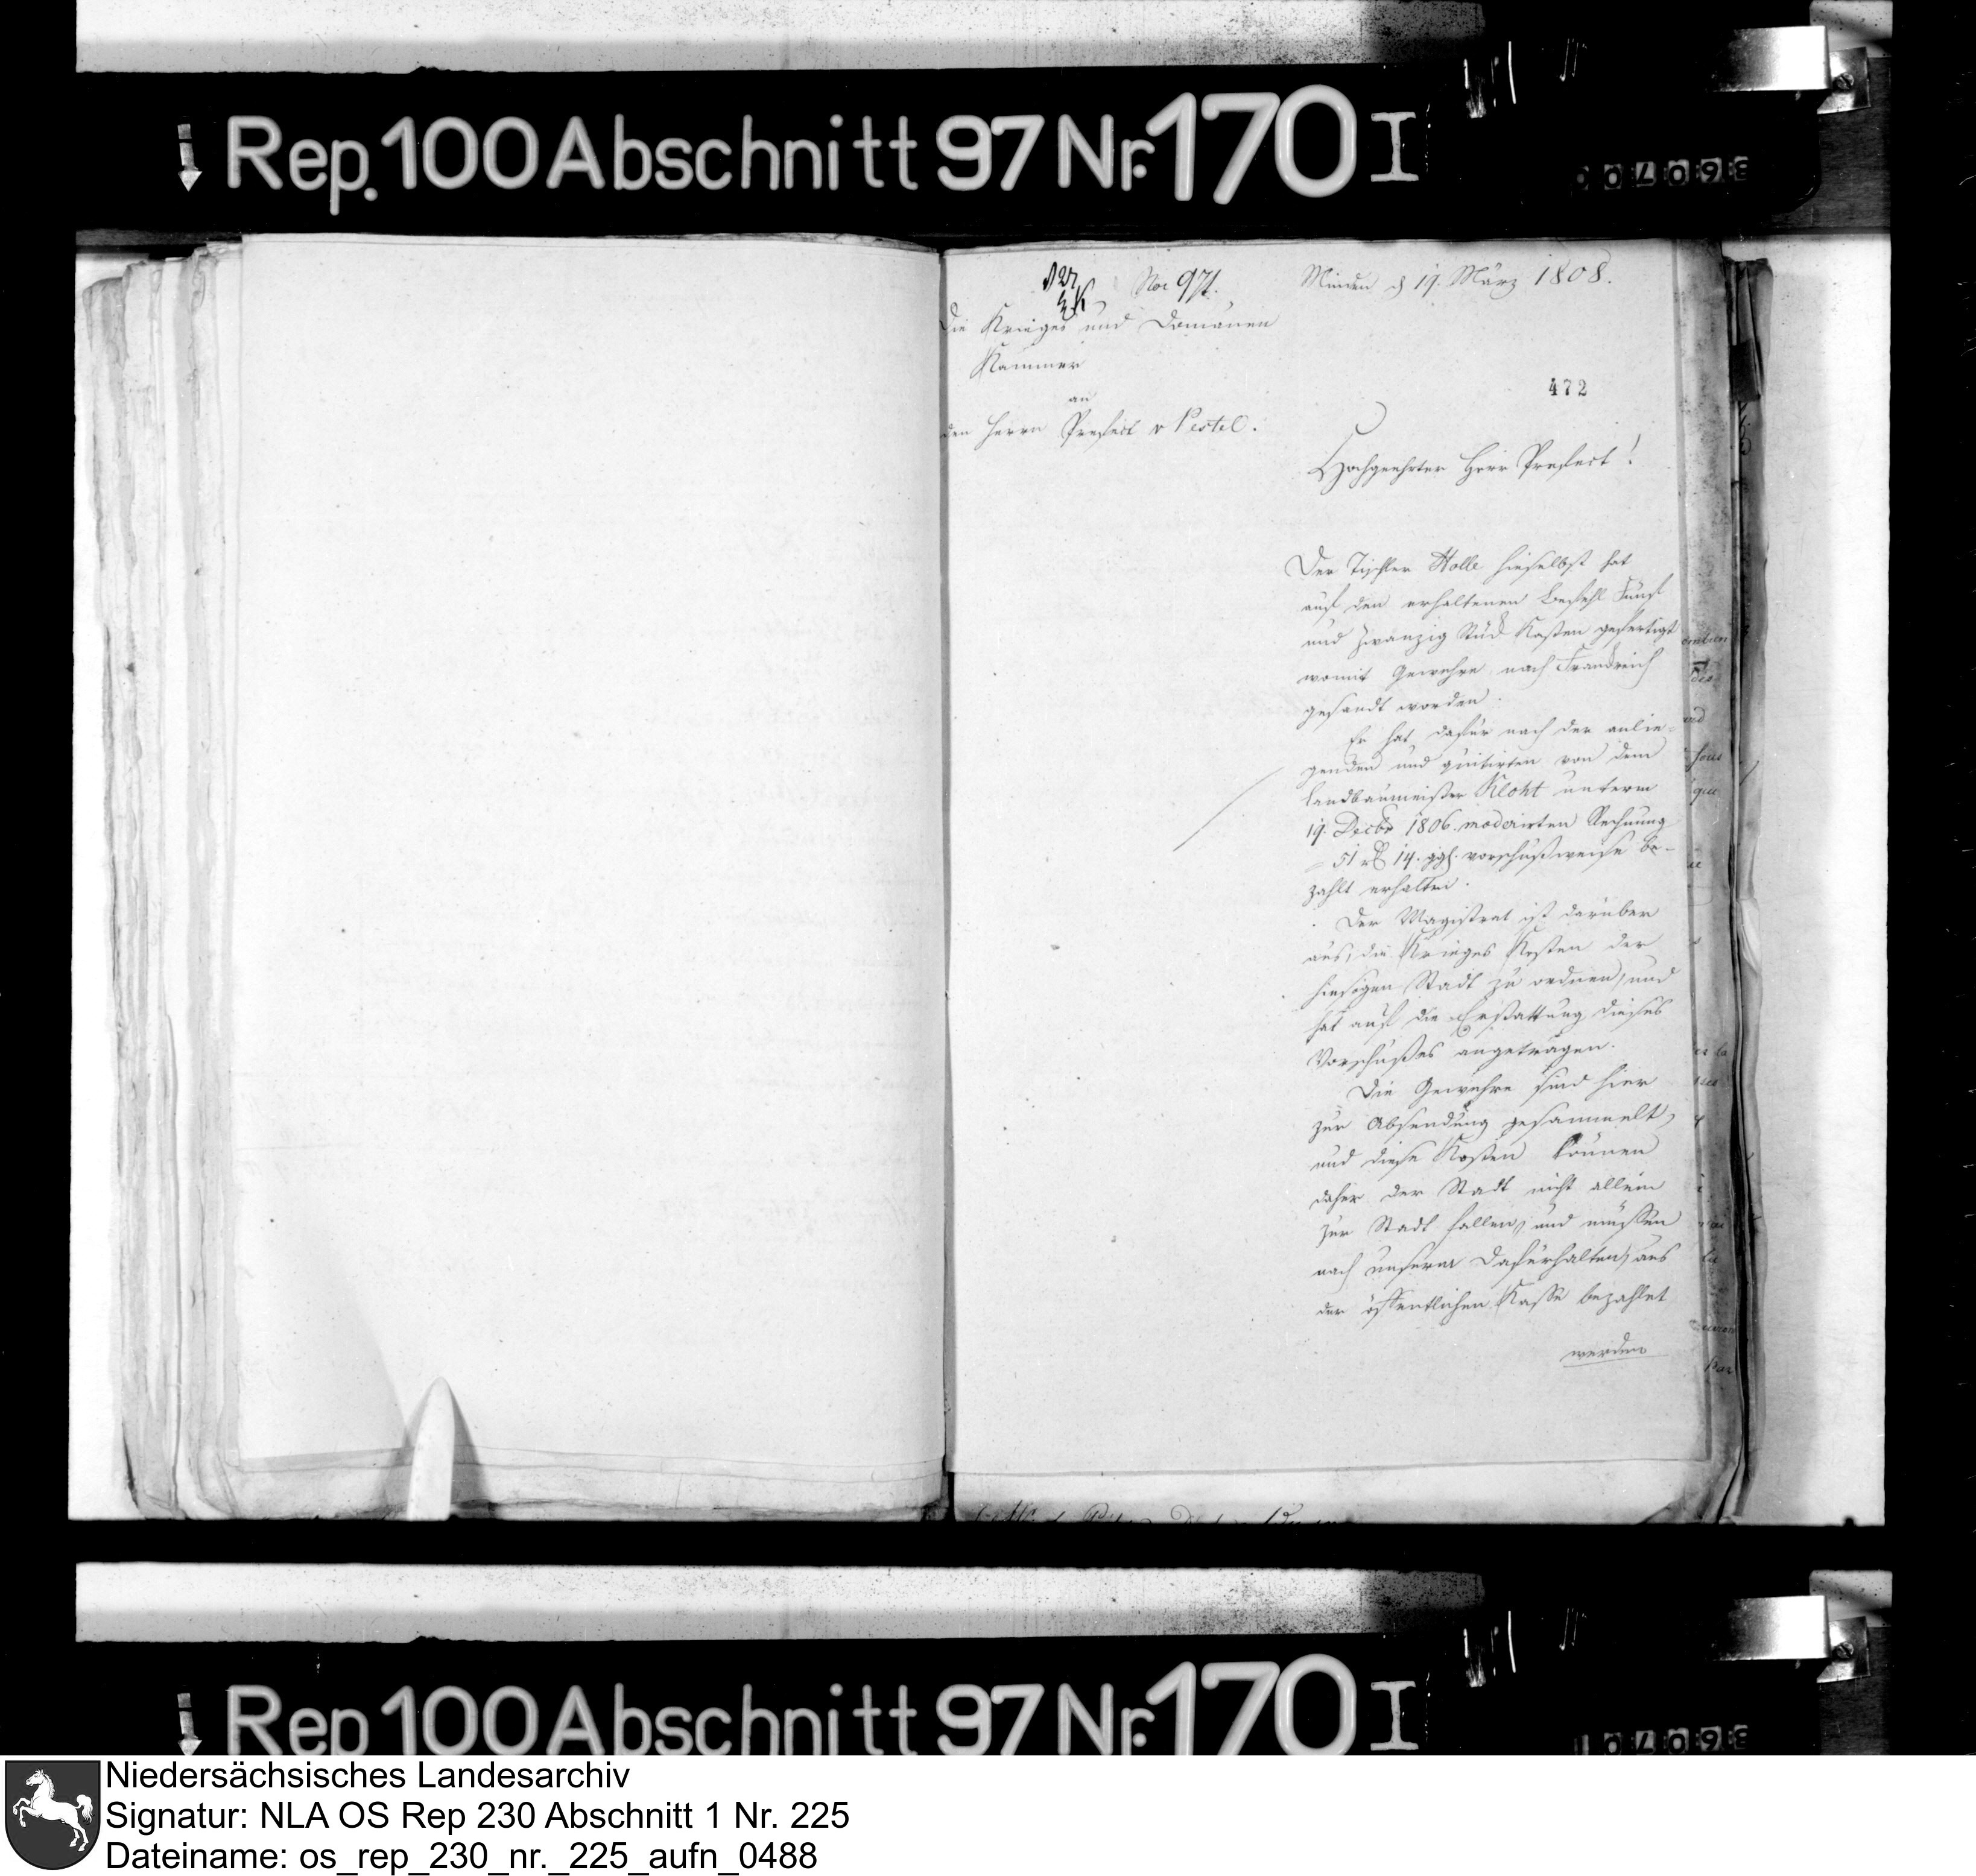 Rep. 100 Abschnitt 97 Nr. 170 I
No 971.
Minden d 19. März 1808.
Die Krieges und Domänen
Kammer
an
den Herrn Prefect v Pestel.
472
Hochgeehrter Herr Prefect!
Der Tischler Holle hieselbst hat
auf den erhaltenen Befehl Fünf
und zwanzig Stück Kasten gefertigt
womit Gewehre nach Frankreich
gesandt worden.
Er hat dafür nach der anlie-
genden und quitirten von dem
Landbaumeister Kloht unterm
19. Decbr 1806. moderirten Rechnung
51 rt 14. ggl. vorschußweise be-
zahlt erhalten.
Der Magistrat ist darüber
aus, die Krieges Kosten der
hiesigen Stadt zu ordnen, und
hat auf die Erstattung dieses
Vorschußes angetragen.
Die Gewehre sind hier
zur Absendung gesammelt,
und diese Kosten können
daher der Stadt nicht allein
zur Stadt fallen, und müssen
nach unserm Dafürhalten, aus
der öffentlichen Kasse bezahlet
werden
Rep 100 Abschnitt 97 Nr. 170 I
Niedersächsisches Landesarchiv
Signatur: NLA OS Rep 230 Abschnitt 1 Nr. 225
Dateiname: os_rep_230_nr._225_aufn_0488